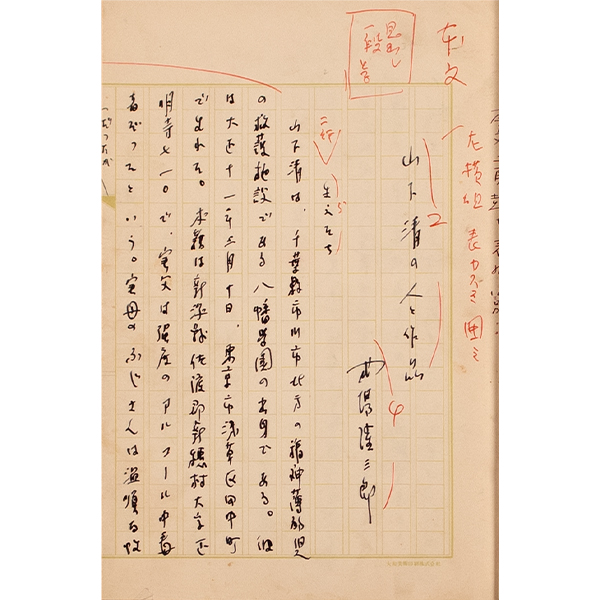 本文
見出し
一段
左横組 表カズミ 囲ミ
山下清の人と作品
2
式場隆三郎
4
二行
生立ち
5
山下清は、千葉縣市川市北方の精神薄弱児
の救護施設である八幡学園の出身である。彼
は大正十一年三月十日、東京市浅草区田中町
で生れた。本籍は新潟縣佐渡郡新穂村大字正
明寺七一〇で、実父は強度のアルコール中毒
者だったという。実母のふじさんは温順な